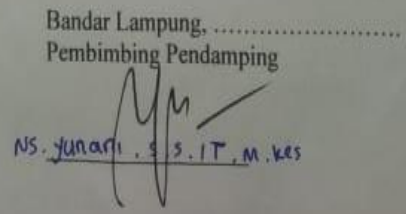 Bandar Lampung, ..............................
Pembimbing Pendamping
NS. Yunani, S S.IT, M.kes